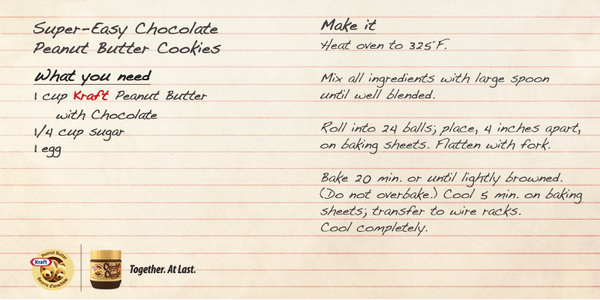 Super-Easy Chocolate
Peanut Butter Cookies
What you need
1 cup Kraft Peanut Butter
with Chocolate
1/4 cup sugar
1 egg
Make it
Heat oven to 325°F.
Mix all ingredients with large spoon
until well blended.
Roll into 24 balls; place, 4 inches apart,
on baking sheets. Flatten with fork.
Bake 20 min. or until lightly browned.
(Do not overbake.) Cool 5 min. on baking
sheets; transfer to wire racks.
Cool completely.
Peanut Butter
Kraft
Beurre d'arachide
Together. At Last.